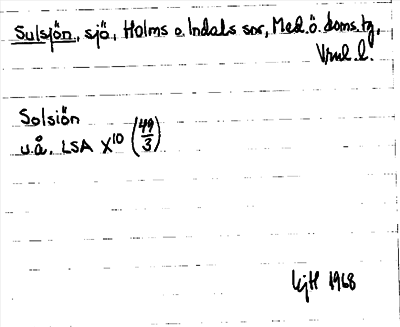 Sulsjön, sjö, Holms o. Indals snr, Med.ö. doms.tg,
Vrnl. l.
Solsiön
u.å. LSA X10 (49/3)
1968